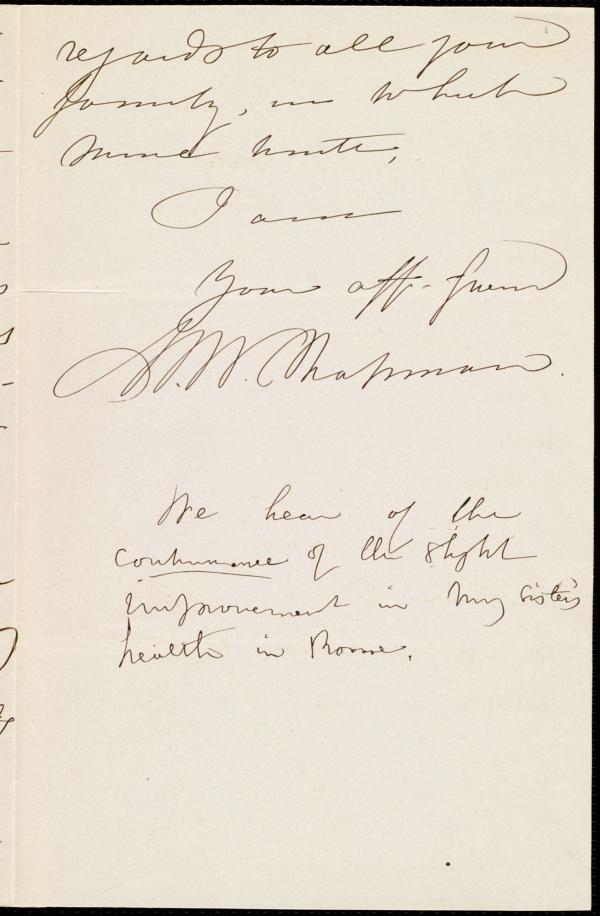 regards to all your
family, in which
mine unite,
I am
Your aff. friend
H. W. Chapman.
We hear of the
continuance of the slight
improvement in my sister's
health in Rome.